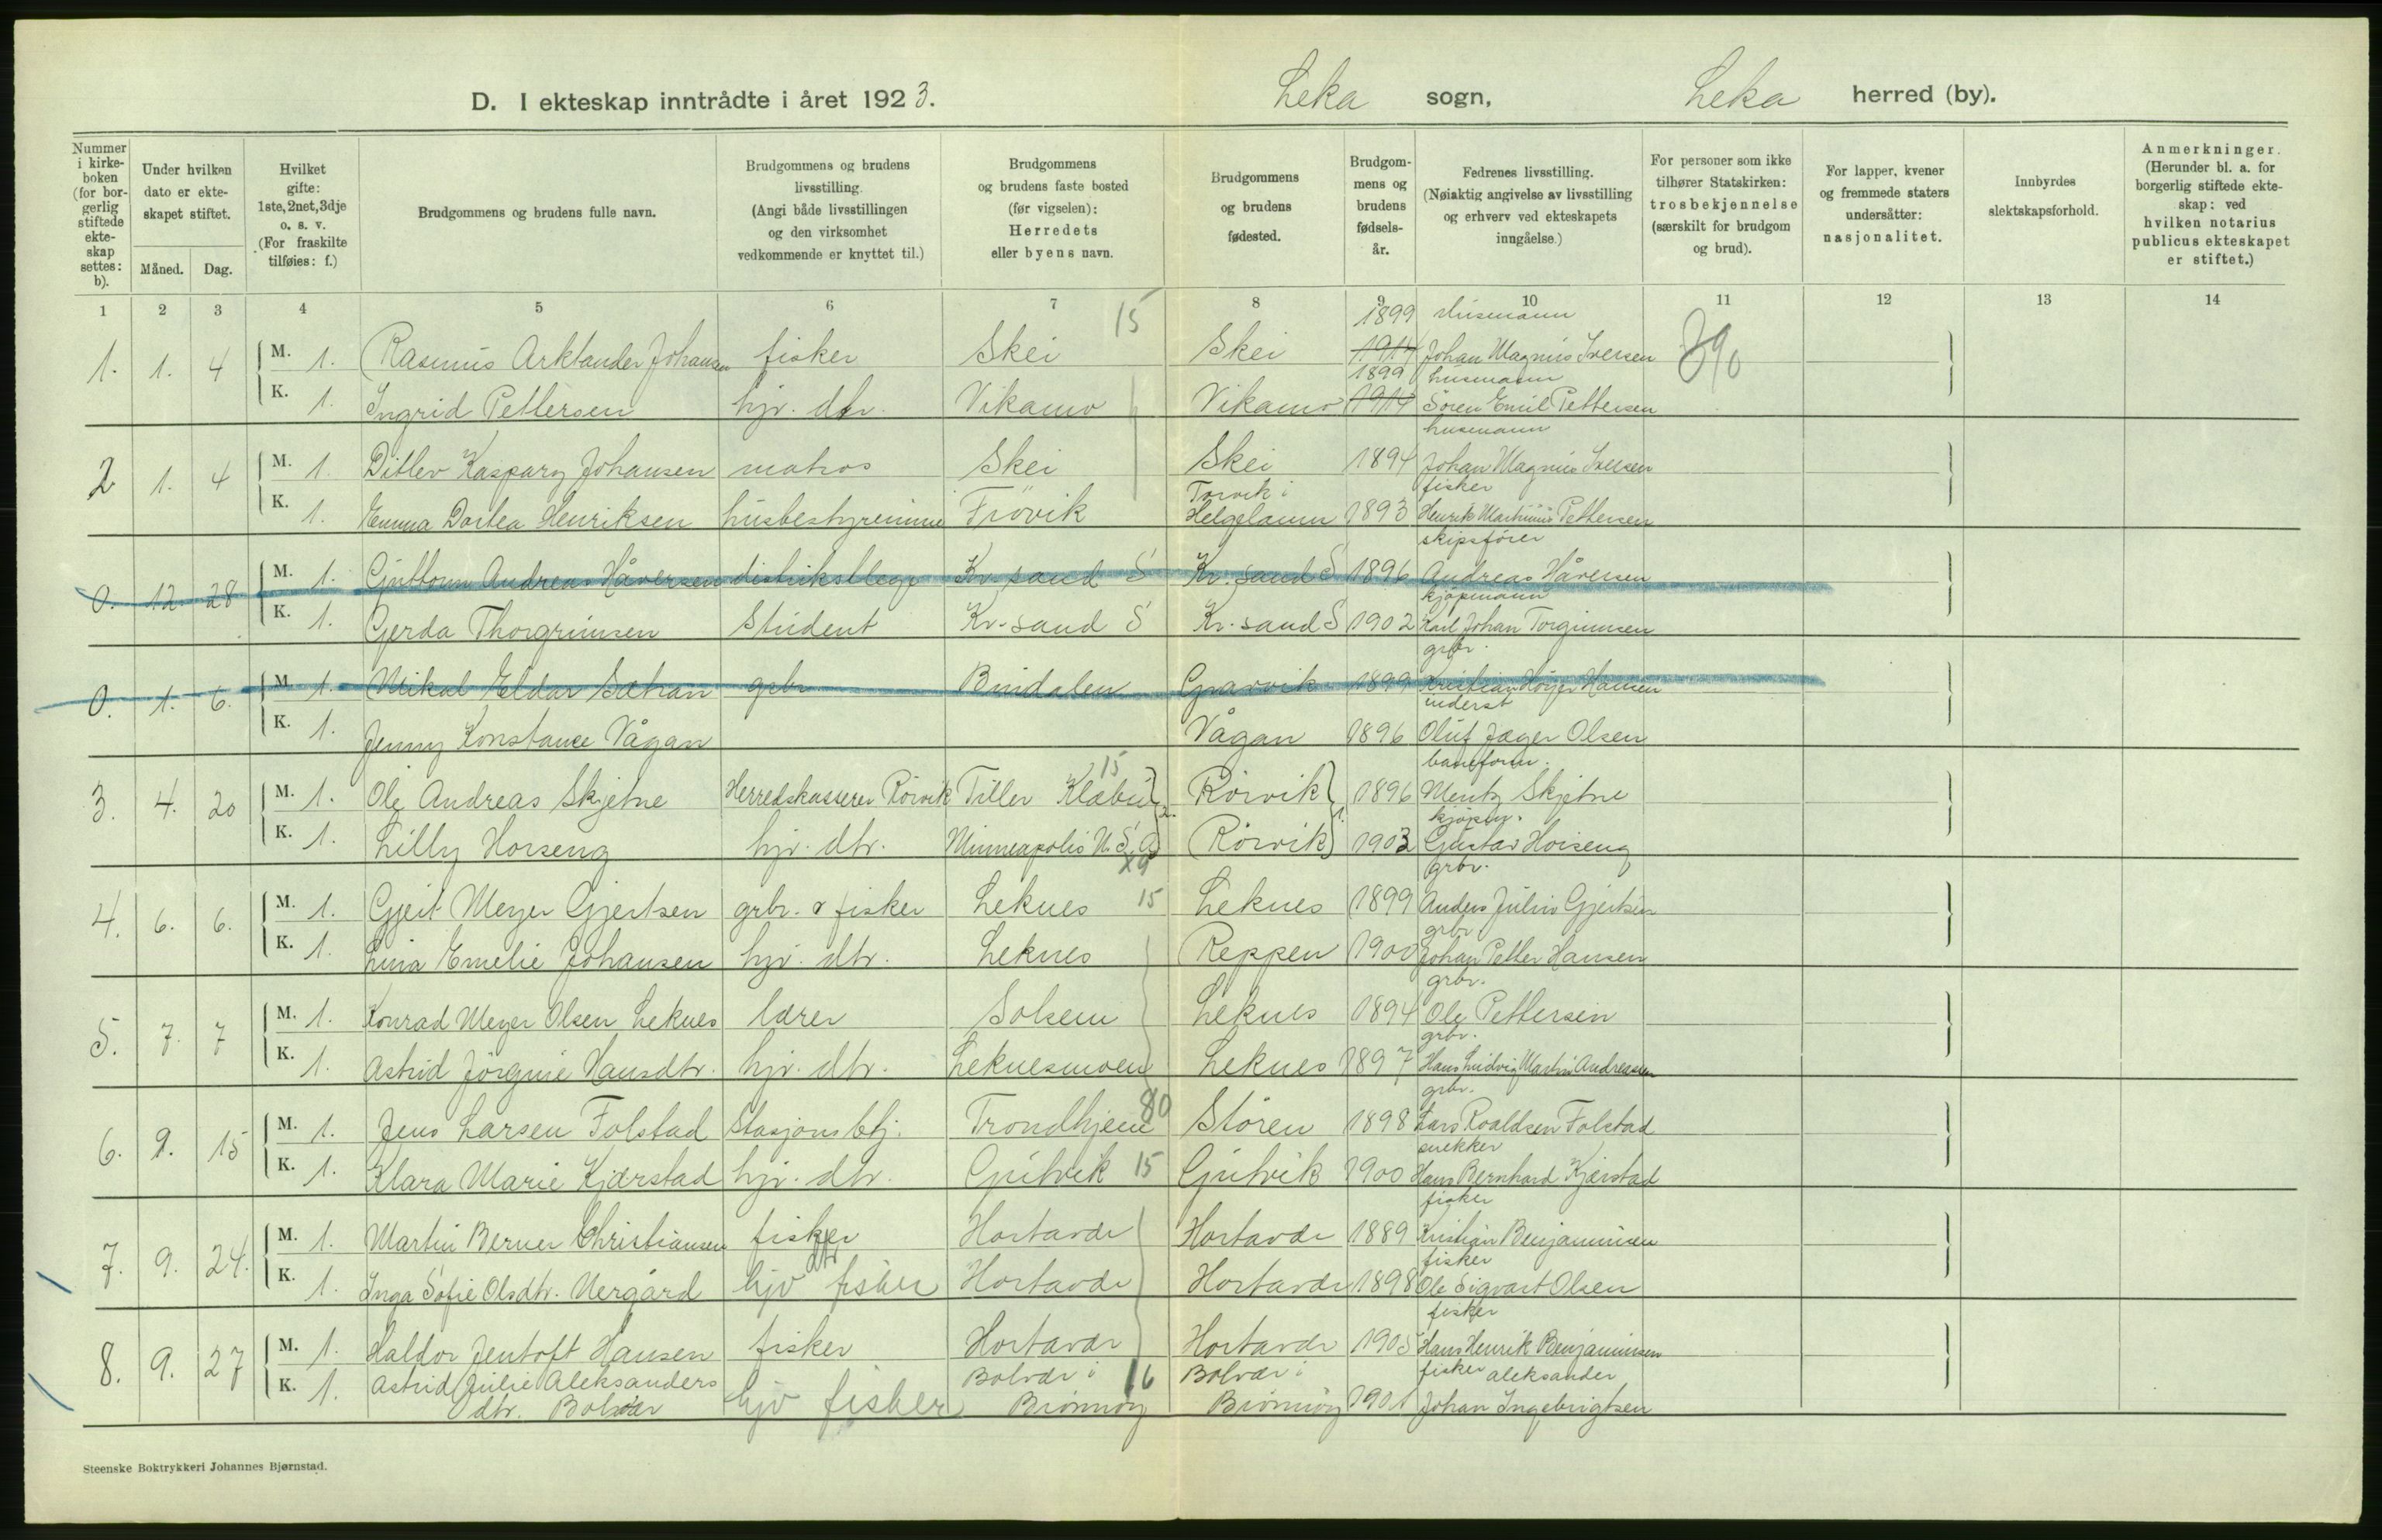 D. I ekteskap inntrådte i året 1923. Leka sogn, Leka herred (by).
Nummer i kirkeboken (for borgerlig stiftede ekteskap settes: b).
Under hvilken dato er ekteskapet stiftet.
Måned. Dag.
Hvilket gifte: 1ste, 2net, 3dje o. s. v. (For fraskilte tilføies: f.)
Brudgommens og brudens fulle navn.
Brudgommens og brudens livsstilling. (Angi både livsstillingen og den virksomhet vedkommende er knyttet til.)
Brudgommens og brudens faste bosted (før vigselen): Herredets eller byens navn.
Brudgommens og brudens fødested.
Brudgommens og brudens fødselsår.
Fedrenes livsstilling. (Nøiaktig angivelse av livsstilling og erhverv ved ekteskapets inngåelse.)
For personer som ikke tilhører Statskirken: trosbekjennelse (særskilt for brudgom og brud).
For lapper, kvener og fremmede staters undersåtter: nasjonalitet.
Innbyrdes slektskapsforhold.
Anmerkninger. (Herunder bl. a. for borgerlig stiftede ekteskap: ved hvilken notarius publicus ekteskapet er stiftet.)
1 2 3 4 5 6 7 8 9 10 11 12 13 14
15 1899 Husmann
1. 1. 4 M. 1. Rasmus Arktander Johansen fisker Skei Skei 1914 Johan Magnus Iversen
1899 husmann
K. 1. Ingrid Pettersen hjv. dtr. Vikamo Vikamo 1914 Søren Emil Pettersen
husmann
2 1. 4 M. 1. Ditlev Kaspary Johansen matros Skei Skei 1894 Johan Magnus Iversen
Torvik i fisker
K. 1. Emma Dortea Henriksen husbestyrerinne Frövik Helgelann 1893 Henrik Martinius Pettersen
skipsfører
0. 12. 28 M. 1. Guttorm Andreas Håversen distrikstlege Kr.sand S Kr.sand S 1896 Andreas Håversen
kjøpmann
K. 1. Gerda Thorgrimsen Student Kr.sand S Kr.sand S 1902 Karl Johan Torgrimsen
grbr.
0. 1. 6. M. 1. Mikal Eldar Sætran grbr Bindalen Gravvik 1899 Kristian Höyer Hansen
inderst
K. 1. Jenny Konstance Vågan Vågan 1896 Oluf Jæger Olsen
15 baneform.
3. 4. 20 M. 1. Ole Andreas Skjetne Herredskasserer Rörvik Tiller Klæbu Rörvik 1896 Mentz Skjetne
kjöpm.
K. 1. Lilly Horseng hjv. dtr. Minneapolis U.S.A Rörvik 1903 Gustav Horseng
grbr.
4. 6. 6. M. 1. Gjert Meyer Gjertsen grbr. & fisker Leknes 15 Leknes 1899 Anders Julius Gjertsen
grbr
K. 1. Lina Emelie Johansen hjv. dtr. Leknes Reppen 1900 Johan Petter Hansen
grbr.
5. 7. 7 M. 1. Konrad Meyer Olsen Leknes lærer Solsem Leknes 1894 Ole Pettersen
grbr.
K. 1. Astrid Jörgine Hansdtr. hjv. dtr. Leknesmoen Leknes 1897 Hans Ludvig Martin Andreasen
grbr.
6. 9. 15 M. 1. Jens Larsen Folstad Stasjons btj. Trondhjem 80 Stören 1898 Lars Roaldsen Folstad
snekker
K. 1. Klara Marie Kjærstad hjv. dtr. Gutvik 15 Gutvik 1900 Hans Bernhard Kjærstad
fisker
7. 9. 24. M. 1. Martin Berner Christiansen fisker Hortavær Hortavær 1889 Kristian Benjaminsen
dtr fisker
K. 1. Inga Sofie Olsdtr. Nergård hjv fisker Hortavær Hortavær 1898 Ole Sigvart Olsen
fisker
8. 9. 27 M. 1. Haldor Jentoft Hansen fisker Hortavær Hortavær 1905 Hans Henrik Benjaminsen
K. 1. Astrid Julie Aleksanders Bolvær i 16 Bolvær i fisker Aleksander
dtr. Bolvær hjv fisker Brönnöy Brönnöy 1901 Johan Ingebrigtsen
Steenske Boktrykkeri Johannes Bjørnstad.